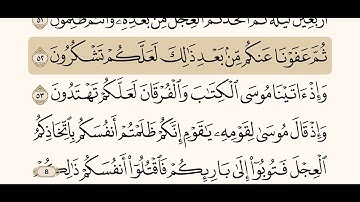 أَرْبَعِينَ لَيْلَةً ثُمَّ ٱتَّخَذْتُمُ ٱلْعِجْلَ مِنۢ بَعْدِهِۦ وَأَنتُمْ ظَٰلِمُونَ ٥١
ثُمَّ عَفَوْنَا عَنكُم مِّنۢ بَعْدِ ذَٰلِكَ لَعَلَّكُمْ تَشْكُرُونَ ٥٢
وَإِذْ ءَاتَيْنَا مُوسَى ٱلْكِتَٰبَ وَٱلْفُرْقَانَ لَعَلَّكُمْ تَهْتَدُونَ ٥٣
وَإِذْ قَالَ مُوسَىٰ لِقَوْمِهِۦ يَٰقَوْمِ إِنَّكُمْ ظَلَمْتُمْ أَنفُسَكُم بِٱتِّخَاذِكُمُ
ٱلْعِجْلَ فَتُوبُوٓا۟ إِلَىٰ بَارِئِكُمْ فَٱقْتُلُوٓا۟ أَنفُسَكُمْ ذَٰلِكُمْ
8